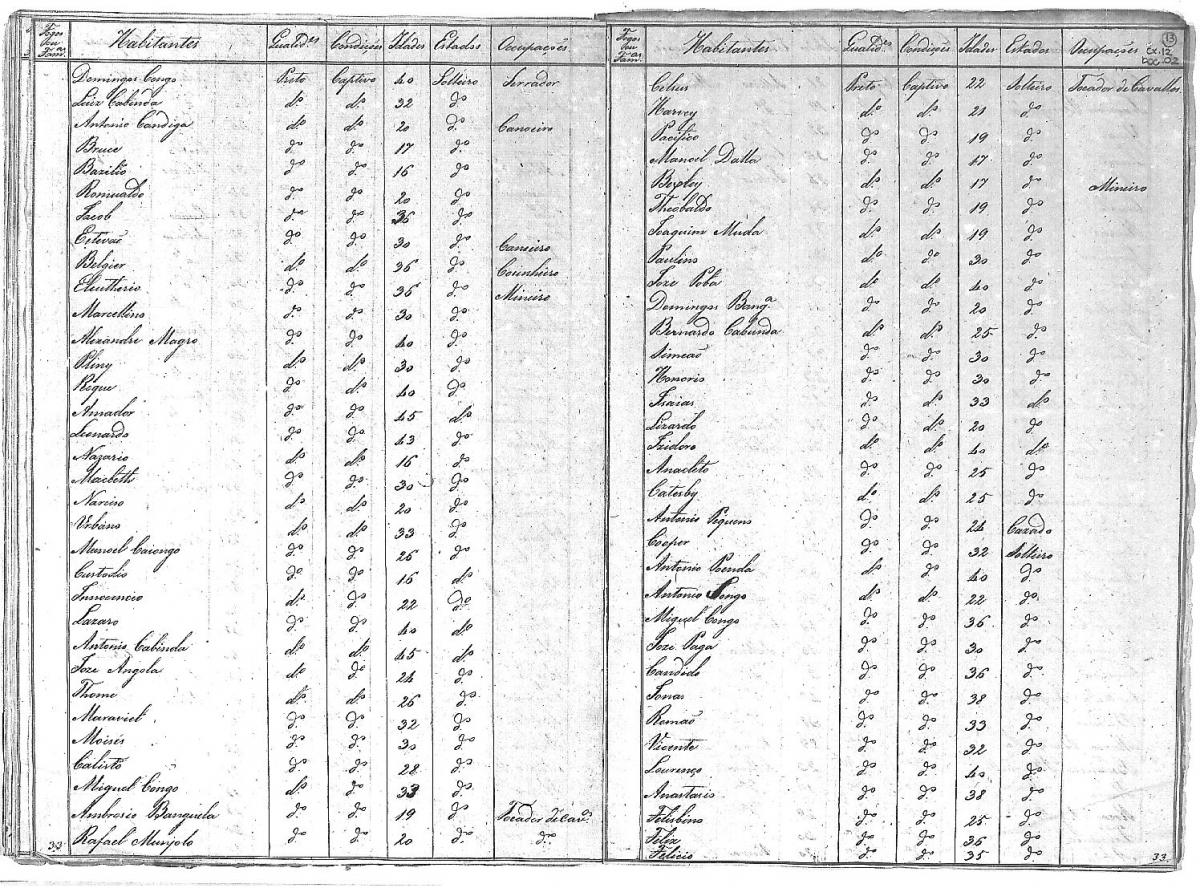 Fogos Fou Fos Fam. Habitantes Qualid.es Condições Idades Estados Occupações
Domingos Congo Preto Captivo 40 Solteiro Serrador
Luiz Cabinda d.o d.o 32 d.o
Antonio Candiga d.o d.o 20 d.o Canoeiro
Bruce d.o d.o 17 d.o
Bazilio d.o d.o 16 d.o
Romualdo d.o d.o 20 d.o
Jacob d.o d.o 36 d.o
Estevaõ d.o d.o 30 d.o Canoeiro
Belgier d.o d.o 36 d.o Cosinheiro
Eleutherio d.o d.o 36 d.o Mineiro
Marcellino d.o d.o 30 d.o
Alexandre Magro d.o d.o 40 d.o
Pliny d.o d.o 30 d.o
Roque d.o d.o 40 d.o
Amador d.o d.o 45 d.o
Leonardo d.o d.o 43 d.o
Nazario d.o d.o 16 d.o
Macbeth d.o d.o 30 d.o
Narciso d.o d.o 20 d.o
Urbano d.o d.o 33 d.o
Manoel Caiongo d.o d.o 26 d.o
Custodio d.o d.o 16 d.o
Innocencio d.o d.o 22 d.o
Lazaro d.o d.o 40 d.o
Antonio Cabinda d.o d.o 45 d.o
Joze Angola d.o d.o 24 d.o
Thome d.o d.o 26 d.o
Maraviel d.o d.o 32 d.o
Moisés d.o d.o 30 d.o
Calisto d.o d.o 28 d.o
Miguel Congo d.o d.o 33 d.o
Ambrosio Banguela d.o d.o 19 d.o Tocador de Cav.os
Rafael Munjolo d.o d.o 20 d.o d.o
33
Fogos Fou Fos Fam. Habitantes Qualid.es Condições Idades Estados Occupações
13
cx.12
DOC.02
Celius Preto Captivo 22 Solteiro Tocador de Cavallos
Harvey d.o d.o 21 d.o
Pacifico d.o d.o 19 d.o
Manoel Datta d.o d.o 17 d.o
Bexley d.o d.o 17 d.o Mineiro
Theobaldo d.o d.o 19 d.o
Joaquim Muda d.o d.o 19 d.o
Paulino d.o d.o 30 d.o
Joze Poba d.o d.o 40 d.o
Domingos Bang.a d.o d.o 20 d.o
Bernardo Cabunda d.o d.o 25 d.o
Simeaõ d.o d.o 30 d.o
Honorio d.o d.o 30 d.o
Isaias d.o d.o 33 d.o
Lizardo d.o d.o 20 d.o
Izidoro d.o d.o 40 d.o
Anacleto d.o d.o 25 d.o
Catesby d.o d.o 25 d.o
Antonio Pequeno d.o d.o 24 Cazado
Cooper d.o d.o 32 Solteiro
Antonio Poenda d.o d.o 40 d.o
Antonio Songo d.o d.o 22 d.o
Miguel Congo d.o d.o 36 d.o
Joze Paga d.o d.o 30 d.o
Candido d.o d.o 36 d.o
Jonas d.o d.o 38 d.o
Romaõ d.o d.o 33 d.o
Vicente d.o d.o 32 d.o
Lourenço d.o d.o 40 d.o
Anastacio d.o d.o 38 d.o
Felisbino d.o d.o 25 d.o
Felix d.o d.o 36 d.o
Felicio d.o d.o 35 d.o
33.